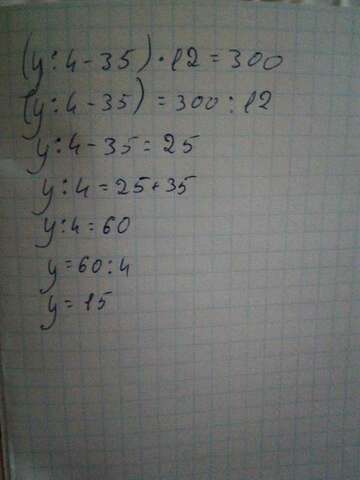 (y:4-35)·12=300
(y:4-35)=300:12
y:4-35=25
y:4=25+35
y:4=60
y=60:4
y=15